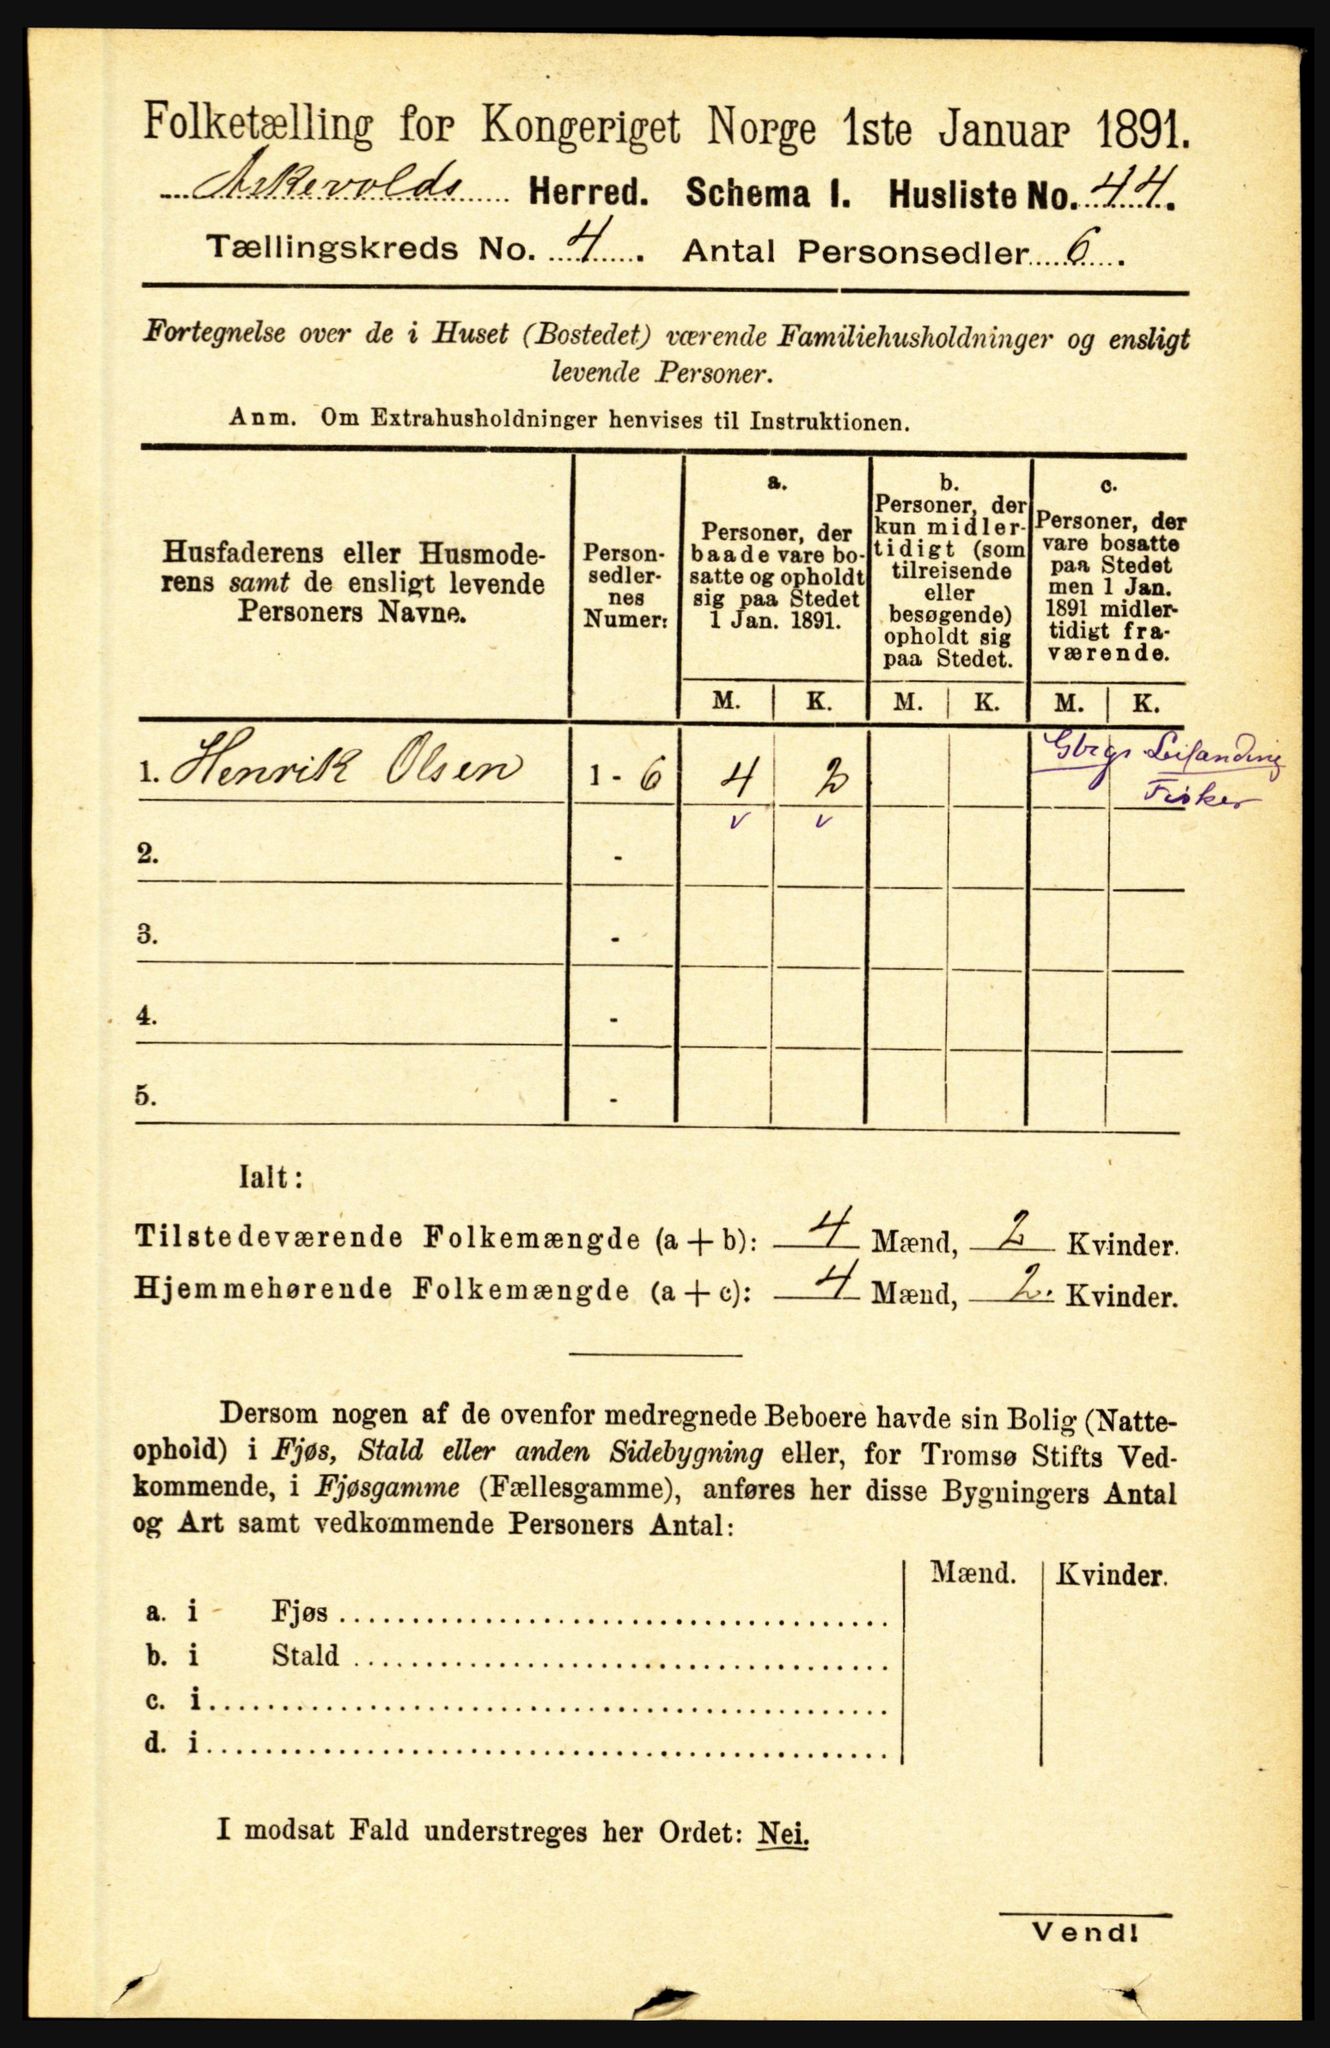 Folketælling for Kongeriget Norge 1ste Januar 1891.
Askevolds Herred. Schema I. Husliste No. 44.
Tællingskreds No. 4. Antal Personsedler 6.
Fortegnelse over de i Huset (Bostedet) værende Familiehusholdninger og ensligt
levende Personer.
Anm. Om Extrahusholdninger henvises til Instruktionen.
Husfaderens eller Husmode-
rens samt de ensligt levende
Personers Navne.
Person-
sedler-
nes
Numer:
a.
Personer, der
baade vare bo-
satte og opholdt
sig paa Stedet
1 Jan. 1891.
b.
Personer, der
kun midler-
tidigt (som
tilreisende
eller
besøgende)
opholdt sig
paa Stedet.
c.
Personer, der
vare bosatte
paa Stedet
men 1 Jan.
1891 midler-
tidigt fra-
værende.
M. K. M. K. M. K.
1. Henrik Olsen 1 - 6 4 2
Fisker
v v
2. -
3. -
4. -
5. -
Ialt:
Tilstedeværende Folkemængde (a + b): 4 Mænd, 2 Kvinder.
Hjemmehørende Folkemængde (a + c): 4 Mænd, 2. Kvinder.
Dersom nogen af de ovenfor medregnede Beboere havde sin Bolig (Natte-
ophold) i Fjøs, Stald eller anden Sidebygning eller, for Tromsø Stifts Ved-
kommende, i Fjøsgamme (Fællesgamme), anføres her disse Bygningers Antal
og Art samt vedkommende Personers Antal:
Mænd. Kvinder.
a. i Fjøs
b. i Stald
c. i
d. i
I modsat Fald understreges her Ordet: Nei.
Vend!